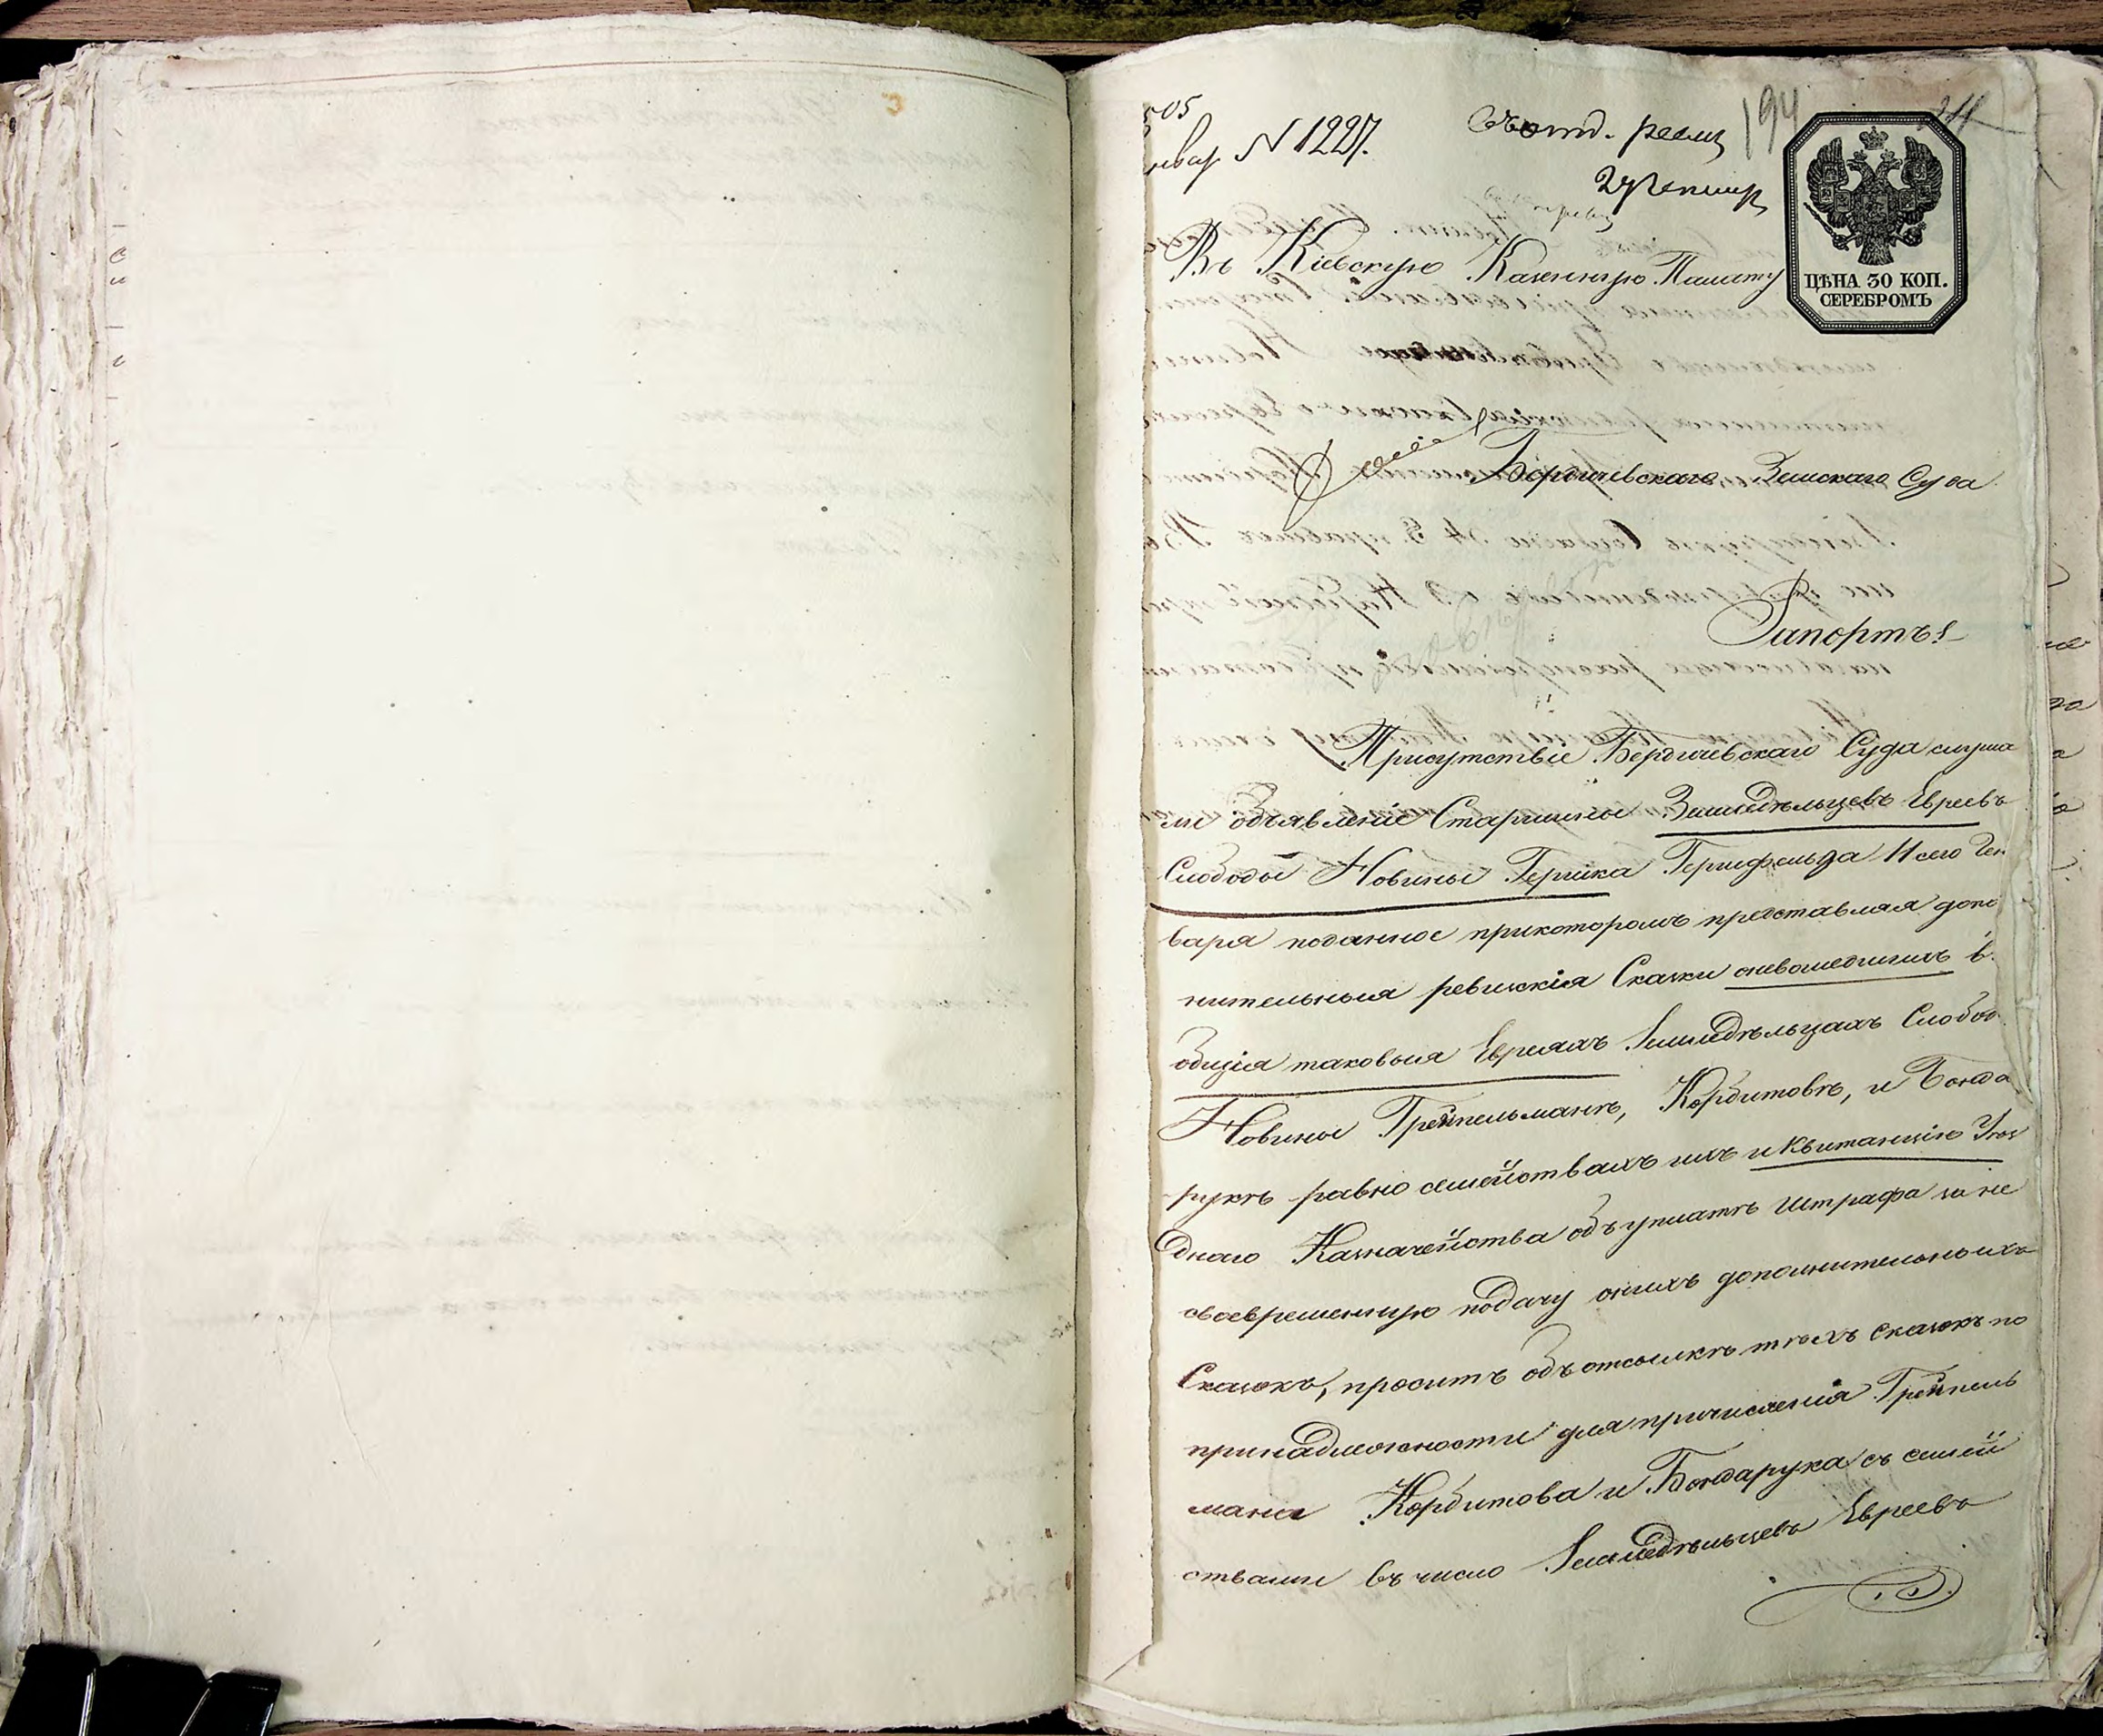 505
N 1227.
194
ЦѢНА 30 КОП.
СЕРЕБРОМЪ
Въ Кіевскую Казенную Палату
Бердичевскаго Земскаго Суда
Рапортъ
Присутствіе Бердичевскаго Суда слуша
ли объявленіе Старшины Земледѣльцевъ Евреевъ
Слободы Новины Гершка Гершфельда 11 сего Ген
варя поданное прикоторомъ представляя допо
нительныя ревизскія Сказки оневошедшихъ в
общія таковыя Евреяхъ Земледѣльцахъ Слобод
Новины Грейпельманѣ, Корбитовѣ, и Бонда
рукѣ равно семействахъ ихъ и Квитанцію Уѣз
днаго Казначейства объ уплатѣ штрафа за не
своевременную подачу онихъ дополнительныхъ
Сказокъ, проситъ объ отсылкѣ тѣхъ сказокъ по
принадлежности для причисленія Грейпель
мана Корбитова и Бондарука съ семей
ствами въ число Земледѣльцевъ Евреевъ